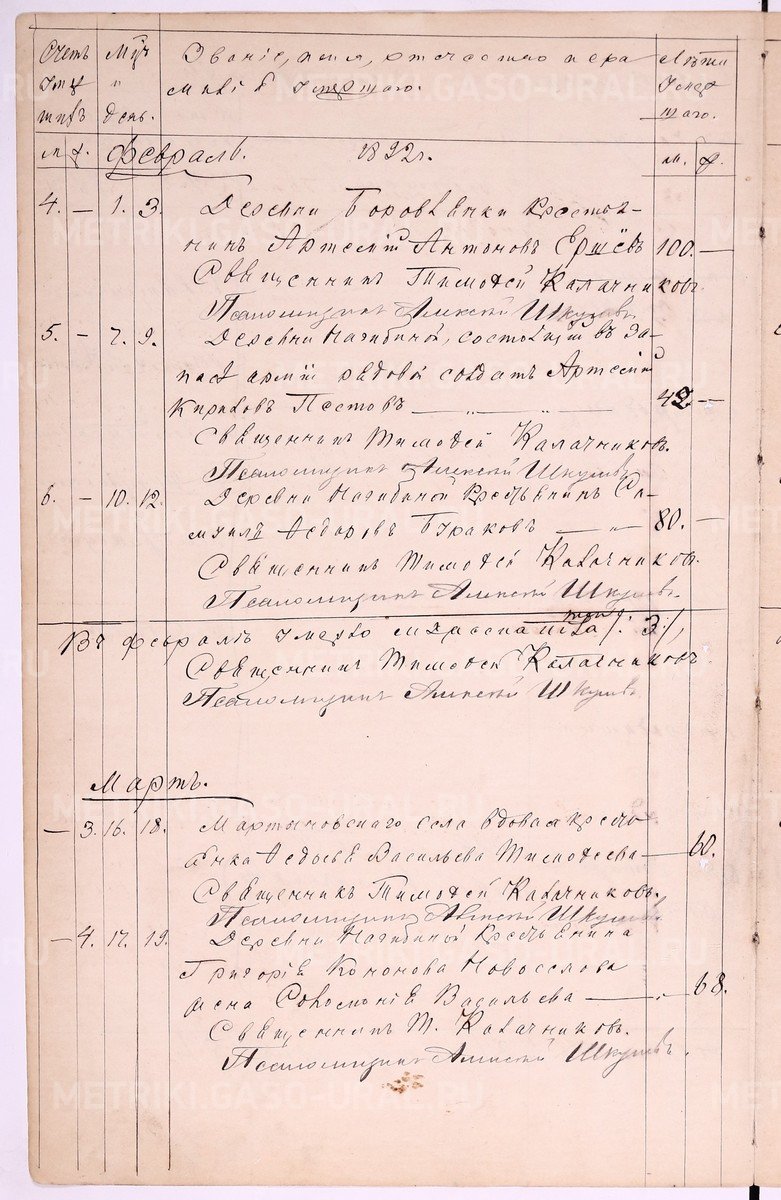 Счетъ Мцъ Званіе, имя, отчество и фа Лѣта
умер " миліѧ умершаго. умер
шихъ день. шаго.
м ж. Февраль. 1892 г. м. ж.
4. — 1. 3. Деревни Боровлянки кресть-
нинъ Артемій Антоновъ Ершёвъ 100. —
Священникъ Тимофей Калачниковъ
Псаломщикъ Алексѣй Шкулевъ
5. — 7. 9. Деревни Нагибиной, состоящій въ за-
пасѣ арміи рядовой солдатъ Артемій
Постовъ — " — " — 42 —
Священникъ Тимофей Калачниковъ.
Псаломщикъ Алексѣй Шкулевъ
6. — 10. 12. Деревни Нагибиной крестьянинъ Са-
муилъ Ѳедоровъ Бураковъ — " — 80. —
Священникъ Тимофей Калачниковъ.
Псаломщикъ Алексѣй Шкулевъ.
Въ февралѣ умерло мужска пола /: три :/ 3 /,
Священникъ Тимофей Калачниковъ
Псаломщикъ Алексѣй Шкулевъ
Мартъ.
— 3. 16. 18. Мартыновскаго села вдовая кресть
янка Ѳедосья Васильева Тимофеева — 60.
Священникъ Тимофей Калачниковъ.
Псаломщикъ Алексѣй Шкулевъ
— 4. 17. 19. Деревни Нагибиной крестьянина
Григорія Кононова Новоселова
жена Соломонія Васильева — " 68.
Священникъ Т. Калачниковъ.
Псаломщикъ Алексѣй Шкулевъ.
METRIKI.GASO-URAL.RU